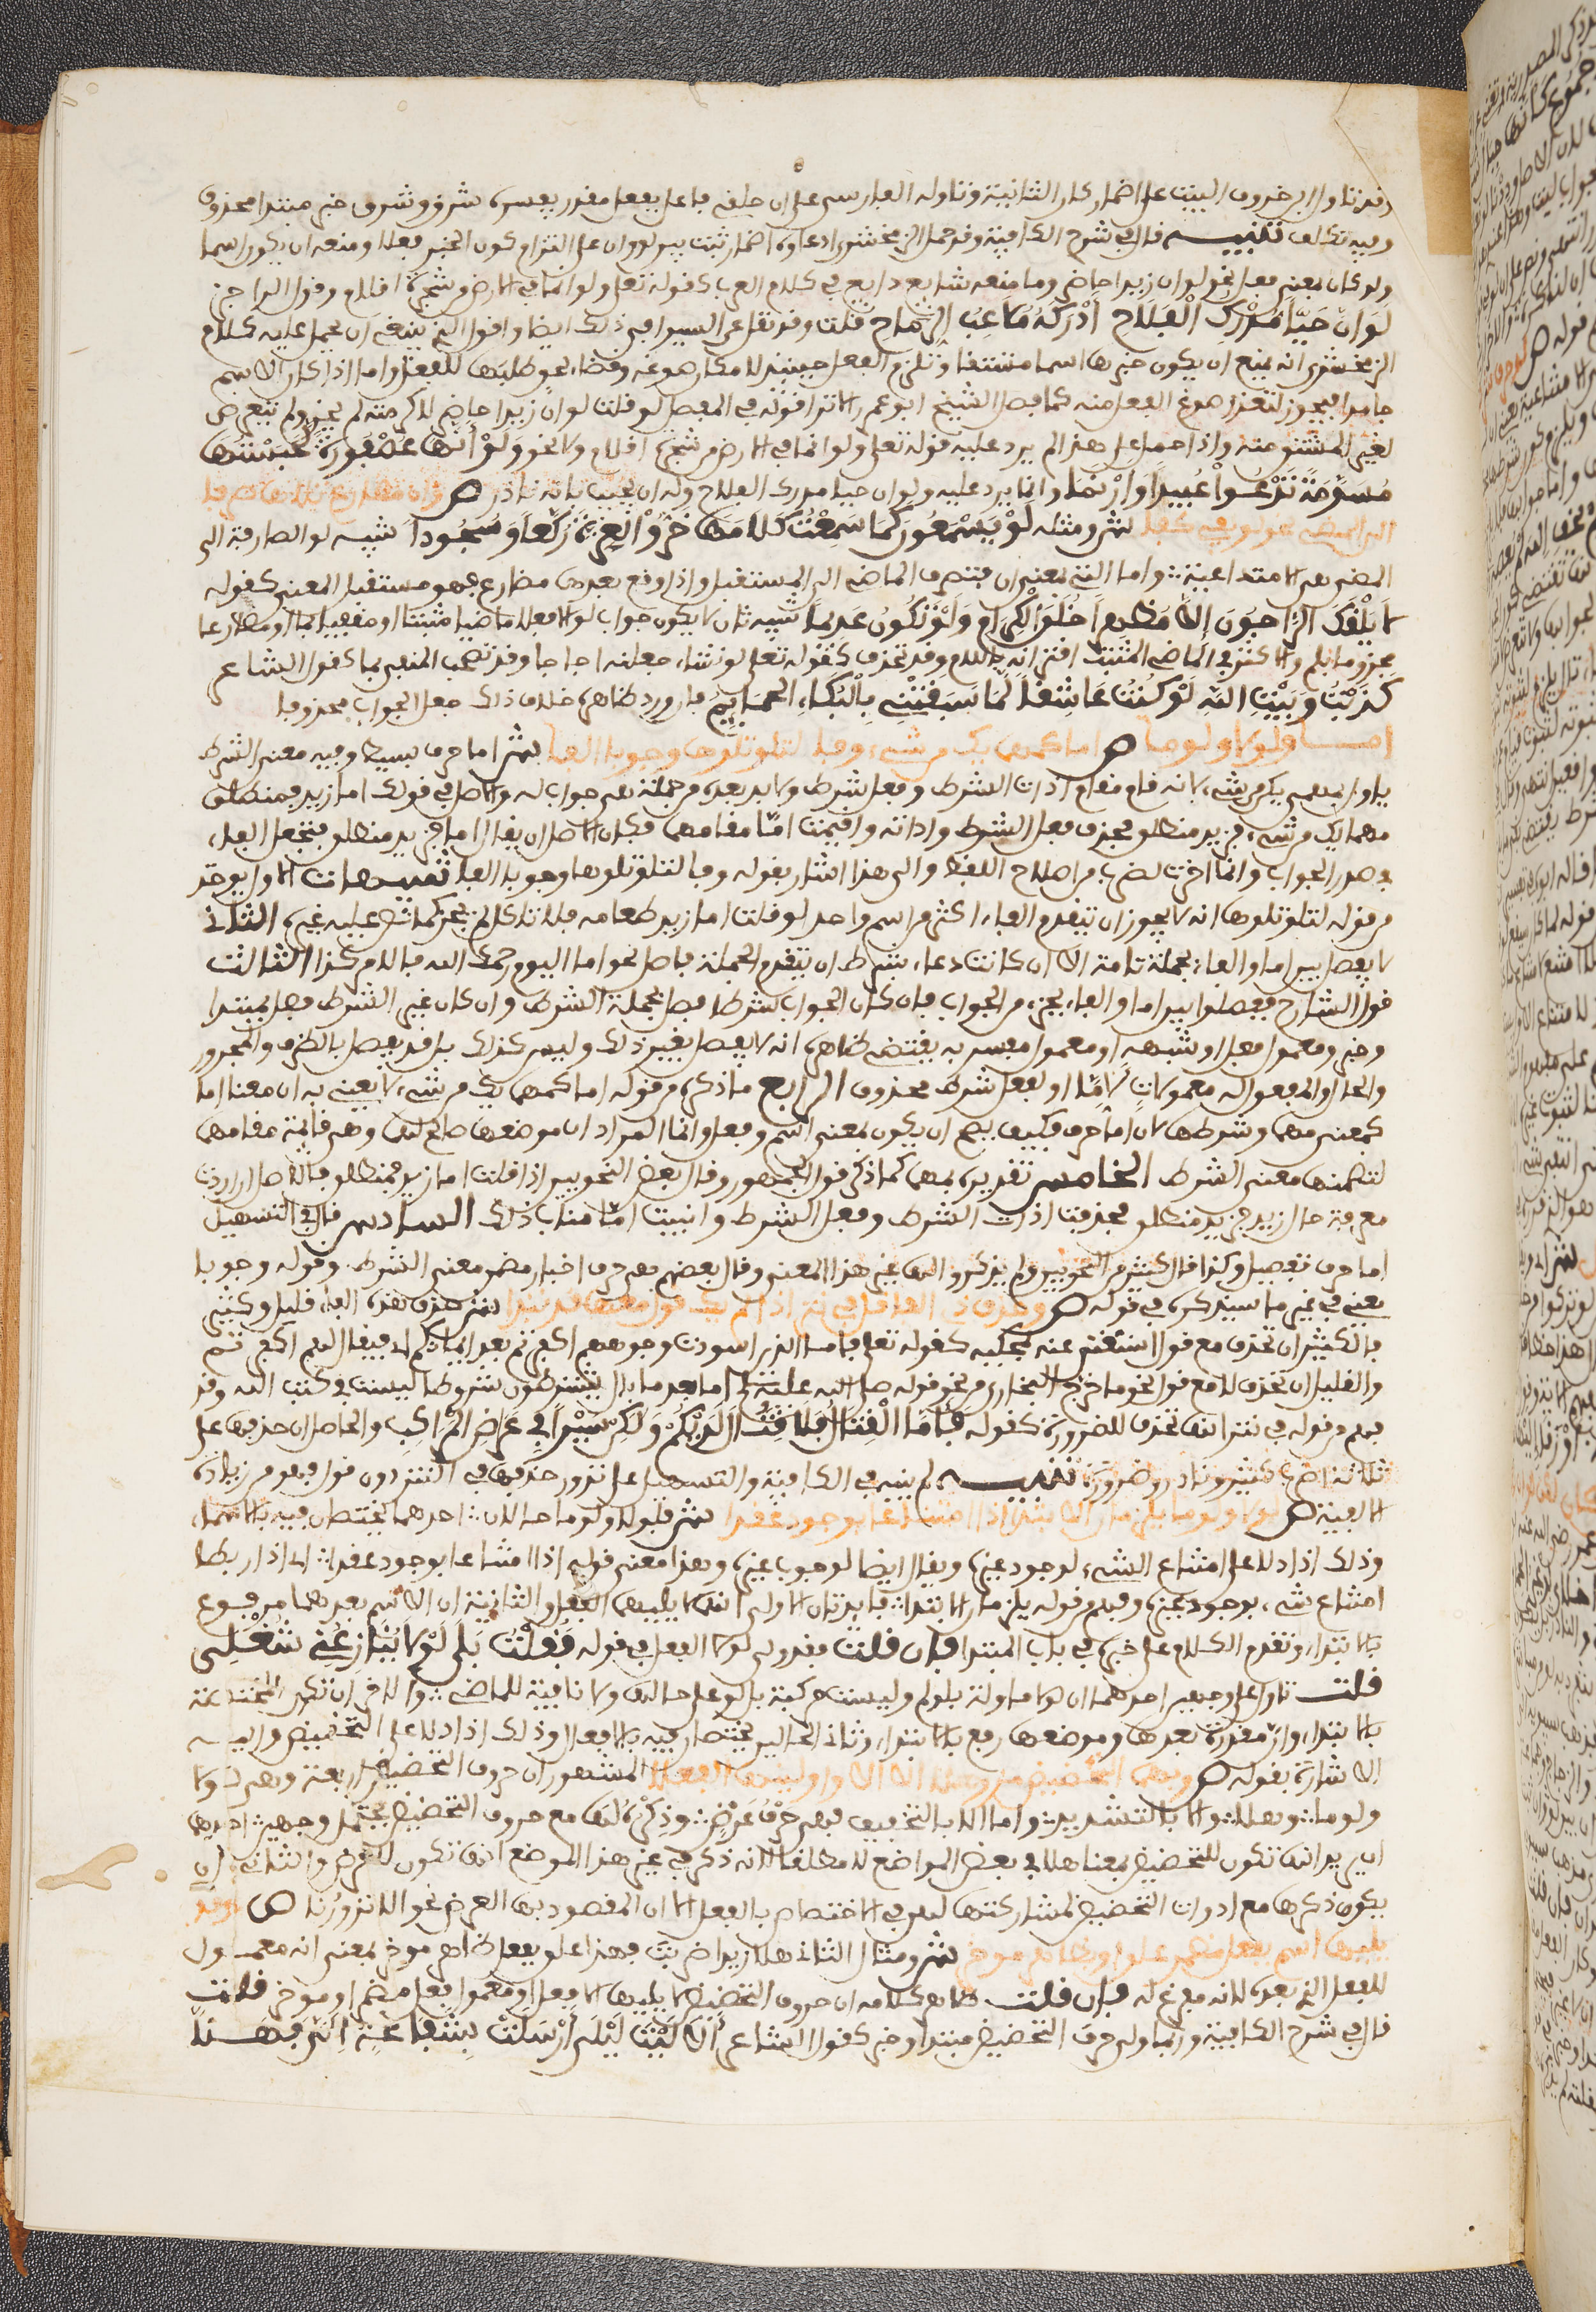 وقد تاول ابن خروف البيت على اضمار كان الشانية وتاوله الفارسي على ان حلفي فاعل بفعل مقدر يفسره شرق وشرق خبر مبتدا محذوف
وفيه تكلف تنبيه قال في شرح الكافية وقد حمل الزمخشري ادعاوه اضمار ثبت بين لو وان على التزام كون الخبر فعلا ومنعه ان يكون اسما
ولو كان بمعنى فعل نحو لو ان زيدا حاضر وما منعه شايع ذايع في كلام العرب كقوله تعلى ولو انما في الارض من شجرة اقلام وقول الراجز
لَوَ انَّ حَيًّا مُدْرِكُ الْفَلَاحِ أَدْرَكَهُ مُلَاعِبُ الرِّمَاحِ قلت وقد نقل عن السيرافي ذلك ايضا واقول الذي ينبغي ان يحمل عليه كلام
الزمخشري انه يمنع ان يكون خبرها اسما مشتقا وتلزم الفعل حينئذ لامكان صوغه وقضاء لحق طلبها للفعل واما اذا كان الاسم
جامدا فيجوز لتعذر صوغ الفعل منه كما فصل الشيخ ابو عمر الا ترى قوله في المفصل لو قلت لو ان زيدا حاضر لاكرمته لم يجز ولم يتعرض
لغير المشتق منه واذا حمل على هذا لم يرد عليه قوله تعلى ولو انما في الارض من شجرة اقلام ولا نحو وَلَوْ أَنَّهَا عُصْفُورَةٌ لَحَسِبْتُهَا
مُسَوَّمَةً تَدْعُوا عُبَيْدًا وَأَزْنَمَا وانما يرد عليه ولو ان حيا مدرك الفلاح وله ان يجيب بانه نادر ص وان مضارع تلاها صرفا
الى المضي نحو لو يفي كفى ش ومثله لَوْ يَسْمَعُونَ كَمَا سَمِعْتُ كَلَامَهَا خَرُّوا لِعَزَّةَ رُكَّعًا وَسُجُودًا تنبيه لو الصارفة الى
المضي هي الامتناعية واما التي بمعنى ان فتصرف الماضي الى المستقبل واذا وقع بعدها مضارع فهو مستقبل المعنى كقوله
لَا يُلْفِكَ الرَّاجُونَ إِلَّا مُظْهِرًا خُلُقَ الْكِرَامِ وَلَوْ تَكُونُ عَدِيمًا تنبيه ثان لا يكون جواب لو الا فعلا ماضيا مثبتا او منفيا بما او مضارعا
مجزوما بلم والاكثر في الماضي المثبت اقترانه باللام وقد تحذف كقوله تعلى لو نشاء جعلناه اجاجا وقد تصحب المنفي بما كقول الشاعر
كَذَبْتُ وَبَيْتِ اللهِ لَوْ كُنْتُ عَاشِقًا لَمَا سَبَقَتْنِي بِالْبُكَاءِ الْحَمَائِمُ فان ورد ظاهره خلاف ذلك جعل الجواب محذوفا
امــا ولولا ولوما ص اما كمهما يك من شيء وفا لتلو تلوها وجوبا الفا ش اما حرف بسيط وفيه معنى الشرط
ياول بمهما يكن من شيء لانه قام مقام اذات الشرط وفعل شرط ولابد بعده من جملة هي جواب له والاصل في قولك اما زيد فمنطلق
مهما يك من شيء فزيد منطلق فحذف فعل الشرط واداته واقيمت امّا مقامهما فكان الاصل ان يقال اما فزيد منطلق فتجعل الفاء
في صدر الجواب وانما اخرت لضرب من اصلاح اللفظ والى هذا اشار بقوله وفا لتلو تلوها وجوبا الفا تنبيهات الاول يوخذ
من قوله لتلو تلوها انه لا يجوز ان يتقدم الفاء اكثر من اسم واحد لو قلت اما زيد طعامه فلا تاكل لم يجز كما نص عليه غيره الثاني
لا يفصل بين اما والفاء بجملة تامة الا ان كانت دعاء بشرط ان يتقدم الجملة فاصل نحو اما اليوم رحمك الله فالامر كذا الثالث
قول الشارح يفصلوا بين اما والفاء بجزء من الجواب فان كان الجواب شرطا فصل بجملة الشرط وان كان غير الشرط فصل بمبتدا
وخبر ومعمول فعل او شبهه او معمول مفسر به يقتضي ظاهره انه لا يفصل بغير ذلك وليس كذلك بل قد يفصل بالظرف والمجرور
والحال والمفعول له معمولات لامّا او لفعل شرط محذوف الرابع ما ذكره من قوله اما كمهما يك من شيء لا يعني به ان معنى اما
كمعنى مهما وشرطها لان اما حرف فكيف يصح ان يكون بمعنى اسم وفعل وانما المراد ان موضعها صالح لهما وهي قائمة مقامهما
لتضمنها معنى الشرط الخامس تقديره بمهما كما ذكر قول الجمهور وقال بعض النحويين اذا قلت اما زيد فمنطلق فالاصل ان اردت
معرفة حال زيد فزيد منطلق فحذفت اذات الشرط وفعل الشرط وانيبت امّا مناب ذلك السادس قال في التسهيل
اما حرف تفصيل وكذا قال كثير من النحويين ولم يذكروا لها غير هذا المعنى وقال بعضهم هي حرف اخبار مضمن معنى الشرط وقوله وجوبا
يعني في غير ما سيذكره في قوله ص وحذف ذي الفا قل في نثر اذا لم يك قول معها قد نبذا ش حذف هذه الفاء قليل وكثير
فالكثير ان تحذف مع قول استغني عنه بمحكيه كقوله تعلى فاما الذين اسودت وجوههم اكفرتم بعد ايمانكم اي فيقال لهم اكفرتم
والقليل ان تحذف لا مع قول نحو ما خرج البخاري من نحو قوله صلى الله عليه اما بعد ما بال رجال يشترطون شروطا ليست في كتب الله وقد
فهم من قوله في نثر انها تحذف للضرورة كقوله فَأَمَّا الْقِتَالُ لَا قِتَالَ لَدَيْكُمُ وَلَكِنَّ سَيْرًا فِي عِرَاضِ الْمَرَاكِبِ والحاصل ان حذفها على
ثلاثة اضرب كثير ونادر وضرورة تنبيه لم ينبه في الكافية والتسهيل على نزور حذفها في النثر دون قول فهو من زيادة
الالفية ص لولا ولوما يلزمان الابتدا اذا امتناعا بوجود عقدا ش فلولا ولوما حالان احدهما يختصان فيه بالاسماء
وذلك اذا دلا على امتناع الشيء لوجود غيره ويقال ايضا لوجوب غيره وهذا معنى قوله اذا امتناعا بوجود عقدا اي اذا ربطا
امتناع شيء بوجود غيره وفهم من قوله يلزمان الابتدا فايدتان الاولى انهما لا يليهما الفعل والثانية ان الاسم بعدهما مرفوع
بالابتداء وتقدم الكلام على خبره في باب المبتدا فان قلت فقد ولي لولا الفعل في قوله فَقُلْتُ بَلَى لَوْلَا يُنَازِعُنِي شُغْلِي
قلت تاول على وجهين احدهما ان لولا ماولة بلو لم وليست مركبة بل لو على حالها ولا نافية للماضي والاخر ان تكون الممتنعة
بالابتداء وان مقدرة بعدها وموضعها رفع بالابتداء وثاني الحالين يختصان فيه بالافعال وذلك اذا دلا على التحضيض واليه
الاشارة بقوله ص وبهما التحضيض مز وهلا الا الا واولينها الفعلا المشهور ان حروف التحضيض اربعة وهي لولا
ولوما وهلا والا بالتشديد واما الا بالتخفيف فهي حرف عرض وذكره لها مع حروف التحضيض يحتمل وجهين احدهما
ان يريد انها تكون للتحضيض بمعنى هلا في بعض المواضع لا مطلقا لانه ذكر في غير هذا الموضع انها تكون للعرض والثاني ان
يكون ذكرها مع ادوات التحضيض لمشاركتها لهن في الاختصاص بالفعل الا ان المقصود بها العرض نحو الا تزورنا ص وقد
يليها اسم بفعل مضمر علق او بظاهر موخر ش ومثال الثاني هلا زيدا ضربت فهذا علق بفعل ظاهر موخر بمعنى انه معمول
للفعل الذي بعده لانه مفرغ له فان قلت ظاهر كلامه ان حروف التحضيض لا يليها الا فعل او معمول فعل مضمر او موخر قلت
قال في شرح الكافية وربما ولي حرف التحضيض مبتدا وخبر كقول الشاعر أَلَا لَيْتَ لَيْلَى أَرْسَلَتْ بِشَفَاعَةٍ إِلَيَّ فَهَلَّا